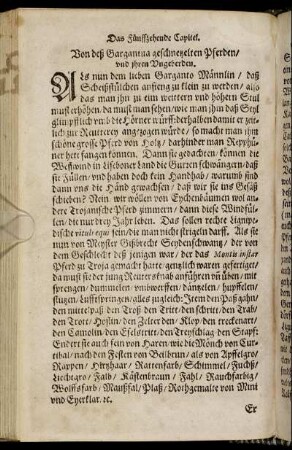 Das Fünffzehende Capitel.
Von deß Gargantua geschnetzelten Pferden/
vnd jhren Vngeberden.
ALs nun dem lieben Garganto Männlin / daß
Scheißstülchen anfieng zu klein zu werden / also
das man jhn zu eim weitern vnd höhern Stul
must erhöhen/ da must man sehen/ wie man jhn daß Styl
glin vmb die Hörner würff: derhalben damit er zeit-
lich zur Reutterey angezogen würde / so macht man jhm
schöne grosse Pferd von Holtz / darhinder man Rephü-
ner hett fangen können. Dann sie gedachten/ können die
Westwind in Lisboner Land die Gurren schwängern daß
sie Füllen / vnd haben doch kein Handhab / warumb sind
dann vns die Händ gewachsen / daß wir sie ins Gesäß
schieben? Nein wir wöllen von Eychenbäumen wol an-
dere Trojanische Pferd zimmern / dann diese Windfül-
len / die nur drey Jahr leben. Das sollen rechte
vituli equi sein/ die man nicht striegeln darff. Als sie
nun von Meyster Gißbrecht Seydenschwantz / der von
dem Geschlecht deß jenigen war / der das Montis instar
Pferd zu Troja gemacht hatte gentzlich waren gefertiget/
da must sie der jung Reutter fein anführen vñ üben/ mit
sprengen / dummelen / vmbwerffen / däntzelen / hupffelen/
flügen/ Lufftspringen/ alles zugleich: Item den Paß gahn/
den mittelpaß/ den Troß den Tritt / den schritt / den Trab/
den Trott / Hoslen / den Zelter den / trecknart/
den Camelin/ den Eselstritt / den Treyschlag den Stapf:
Endert sie auch fein von Haren wie die Mönch von Cur-
tibal / nach den Festen von Beilbrun / als von Apffelgro
Rappen / Hirtzhaar / Rattenfarb / Schimmel / Fuchß/
Liechtgro / Falb / Kästenbraun / Fahl / Rauchfarbig/
Wolffsfarb / Maußfal / Plaß / Rothgemalte von Mini
vnd Eyerklar. ꝛc.
Er